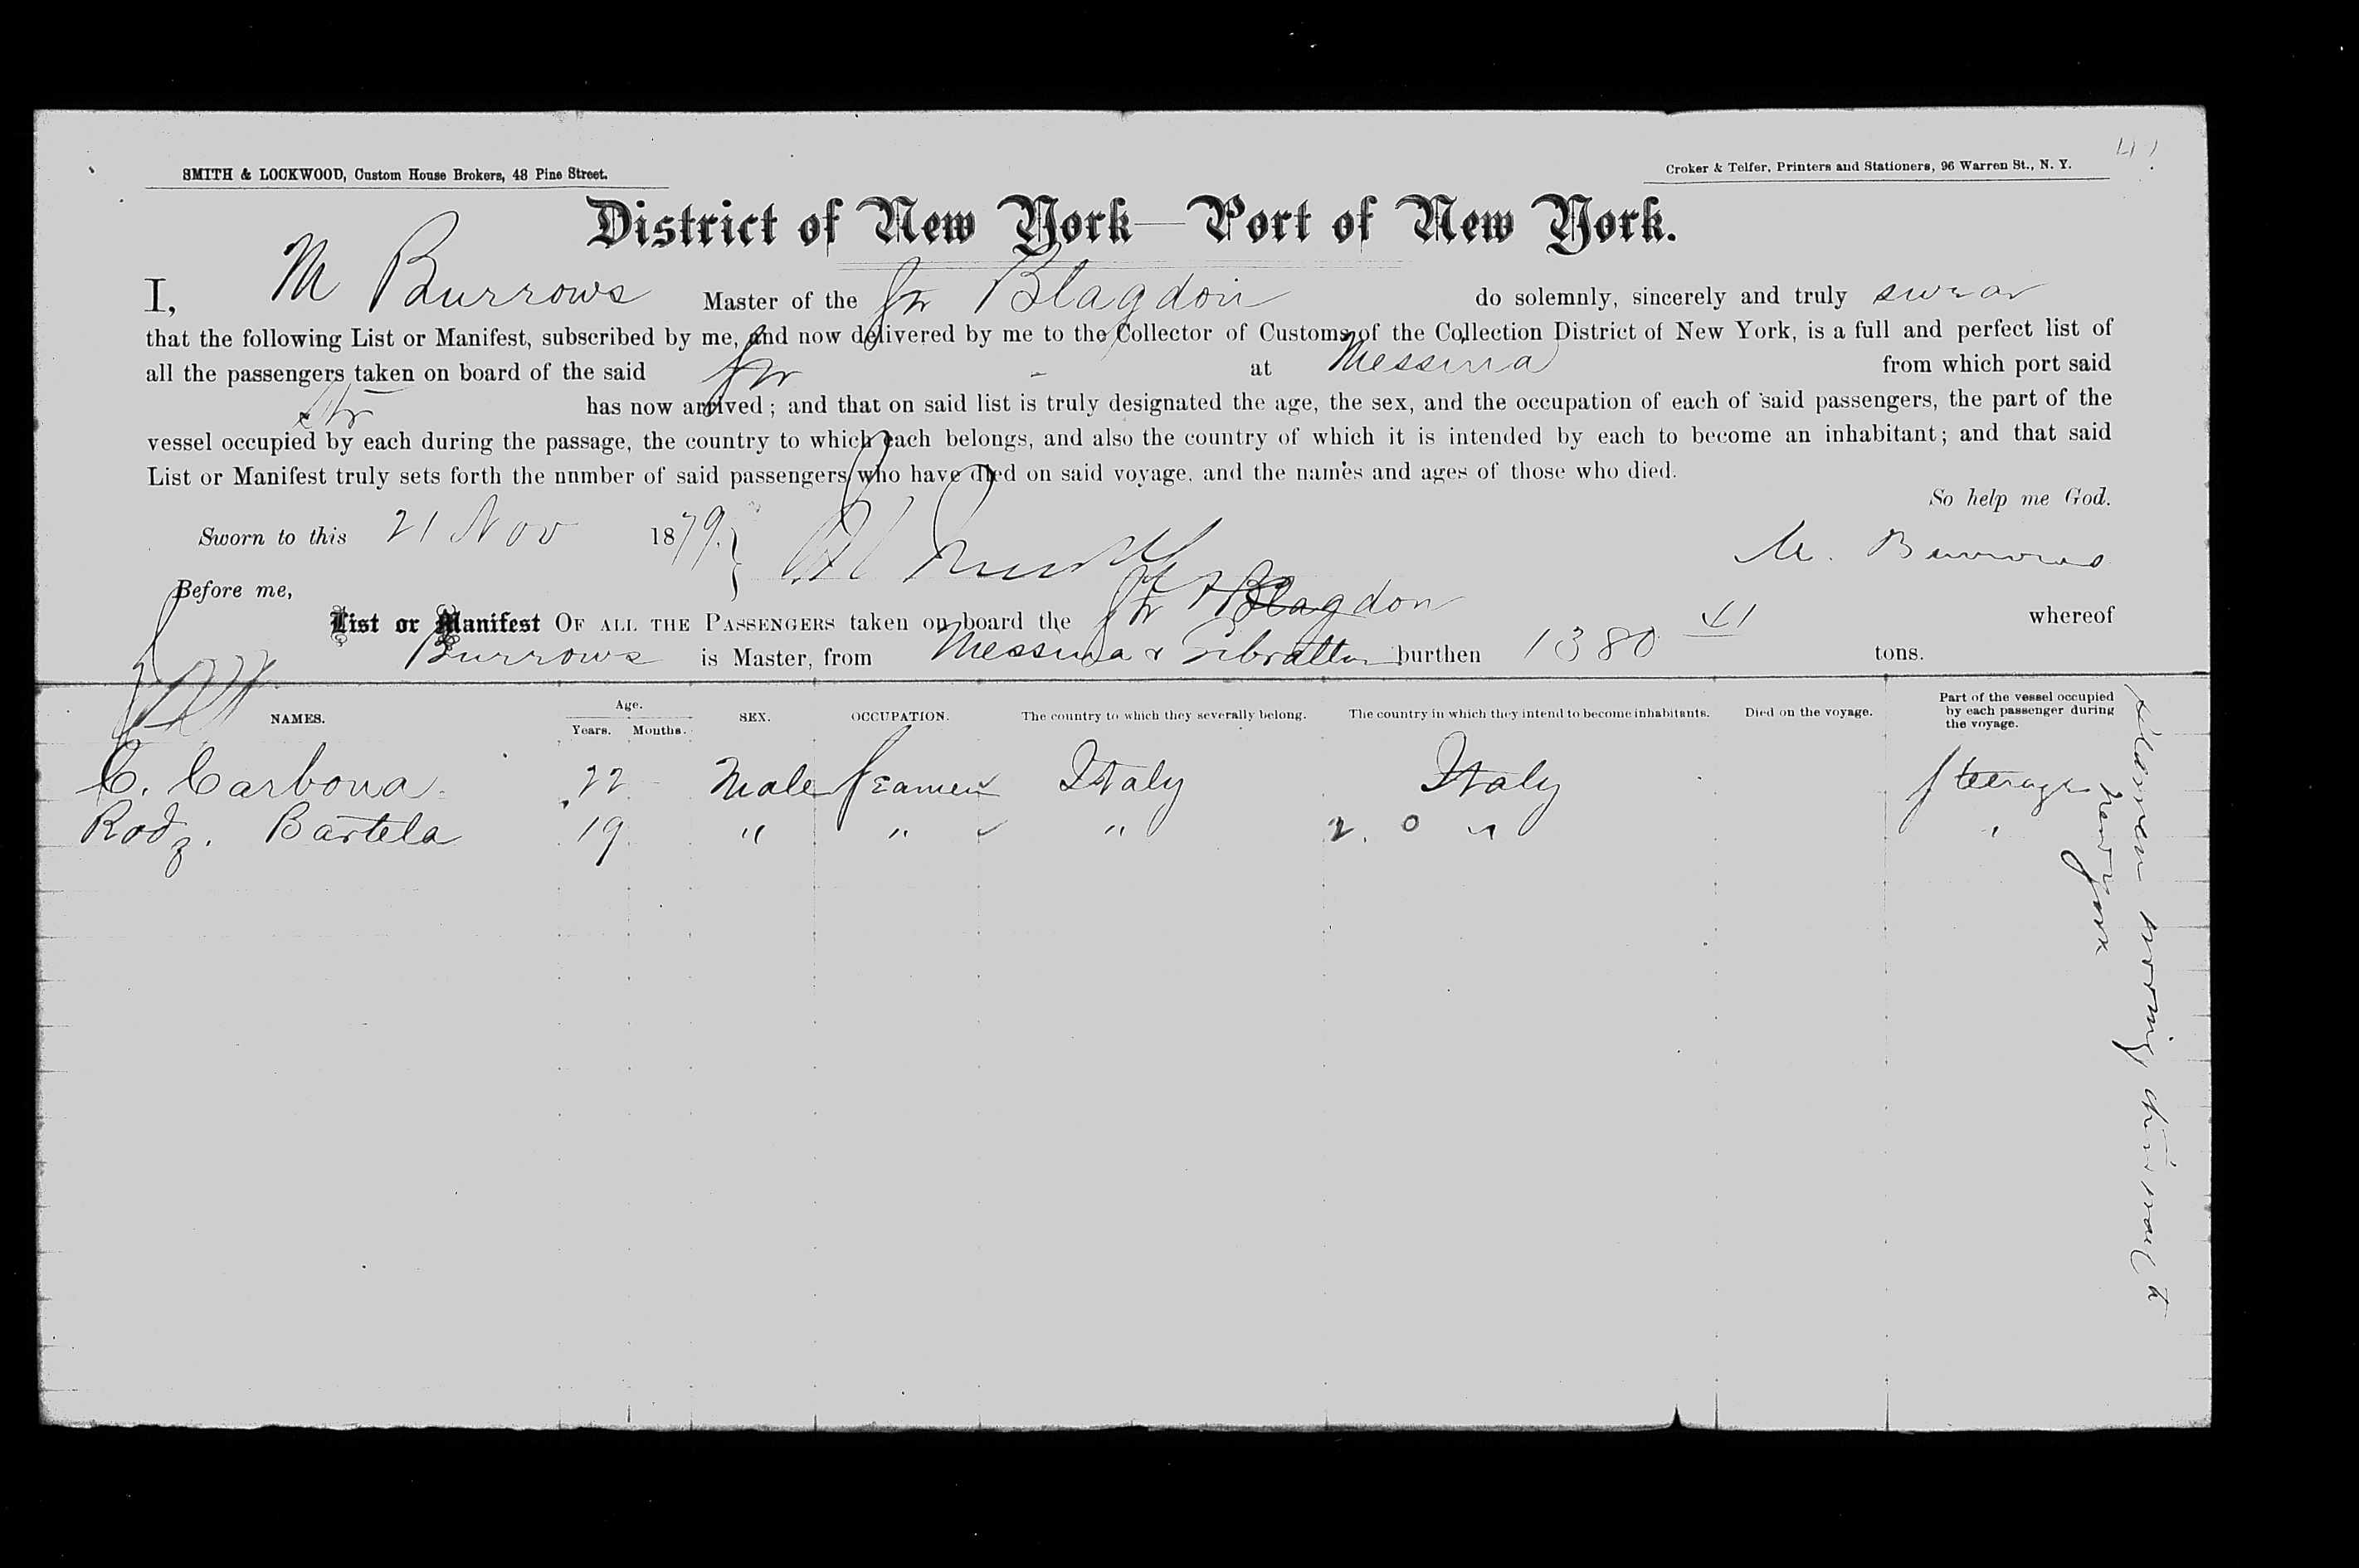 SMITH & LOCKWOOD, Custom House Brokers, 48 Pine Street.
Croker & Telfer, Printers and Stationers, 96 Warren St., N. Y.
District of New York—Port of New York.
I, M Burrows Master of the Str Blagdon do solemnly, sincerely and truly swear
that the following List or Manifest, subscribed by me, and now delivered by me to the Collector of Customs of the Collection District of New York, is a full and perfect list of
all the passengers taken on board of the said Str at Messina from which port said
Str has now arrived; and that on said list is truly designated the age, the sex, and the occupation of each of said passengers, the part of the
vessel occupied by each during the passage, the country to which each belongs, and also the country of which it is intended by each to become an inhabitant; and that said
List or Manifest truly sets forth the number of said passengers who have died on said voyage, and the names and ages of those who died.
So help me God.
Sworn to this 21 Nov 1879.
M. Burrows
Before me,
List or Manifest OF ALL THE PASSENGERS taken on board the Str Blagdon whereof
Burrows is Master, from Messina & Gibraltar burthen 1380 41 tons.
NAMES. Age. Years. Months. SEX. OCCUPATION. The country to which they severally belong. The country in which they intend to become inhabitants. Died on the voyage. Part of the vessel occupied by each passenger during the voyage.
C. Carbona 22 Male Seamen Italy Italy Steerage
Rodz. Bartela 19 " " " 2. 0 " "
Seamen working their way to
New York